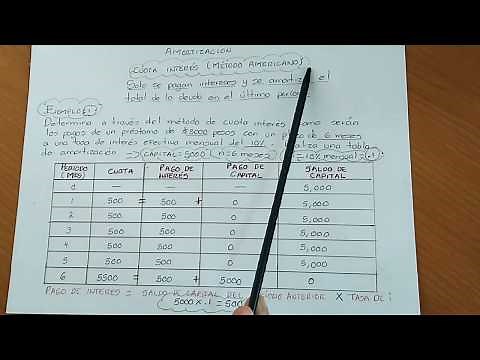 AMORTIZACIÓN
CUOTA INTERÉS (MÉTODO AMERICANO)
Solo se pagan intereses y se amortiza el
total de la deuda en el último
EJEMPLO 1
Determina a través del método de cuota interés como serán
los pagos de un préstamo de $5000 pesos con un plazo de 6 meses
a una tasa de interés efectiva mensual del 10% . Realiza una tabla
de amortización → CAPITAL = 5000 n = 6 meses = 10% mensual = .1
PERIODO (MES) CUOTA PAGO DE INTERÉS PAGO DE CAPITAL SALDO DE CAPITAL
0 — — — 5,000
1 500 = 500 + 0 5,000
2 500 500 0 5,000
3 500 500 0 5,000
4 500 500 0 5,000
5 500 500 0 5,000
6 5500 = 500 + 5000 0
PAGO DE INTERES = SALDO DE CAPITAL DEL ANTERIOR X TASA DE i
5000 X .1 = 500